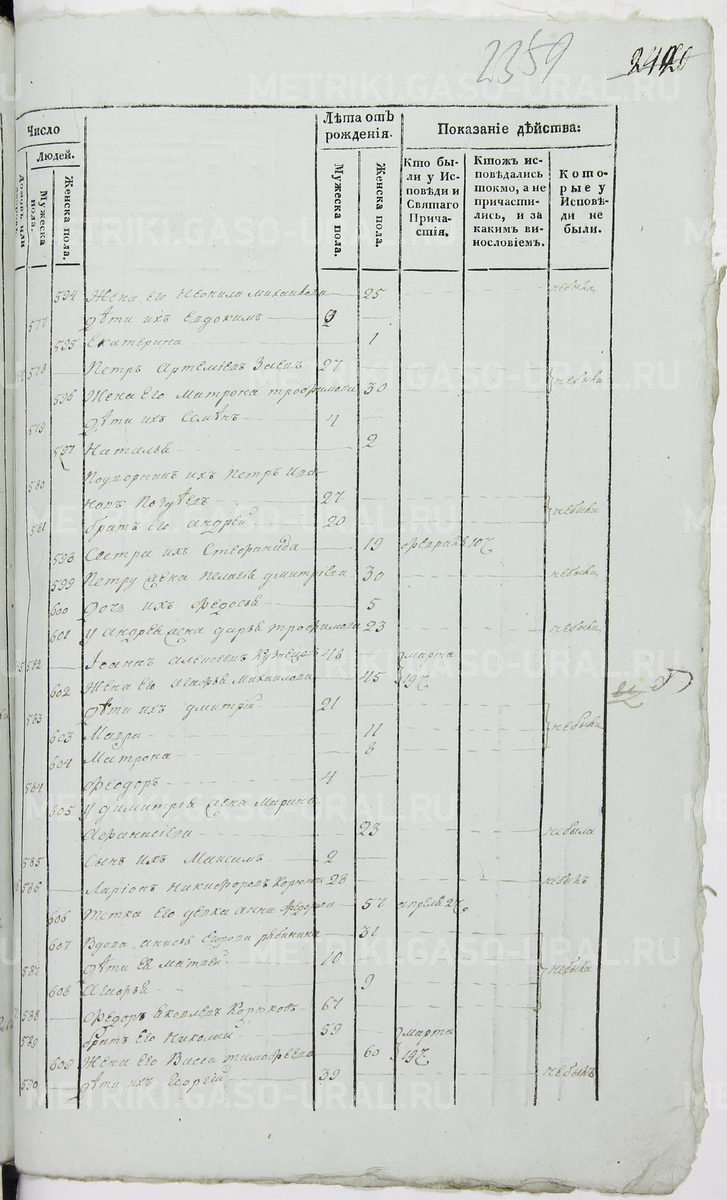 2359
Число
Людей.
Домовъ или
Мужеска пола.
Женска пола.
Лѣта отъ рожденія.
Мужеска пола.
Женска пола.
Показаніе дѣйства:
Кто бы-
ли у Ис-
повѣди и
Святаго
Прича-
стія.
Ктожъ ис-
повѣдались
токмо, а не
причасти-
лись, и за
какимъ ви-
нословіемъ.
Кото-
рые у
Исповѣ-
ди не
были.
594 Жена его Неонила Михаилова 25 небыва
577 дѣти ихъ Евдокимъ 9
595 Екатерина 1
578 Петръ Артемьевъ Заевъ 27
596 Жена его Матрона Трофимова 30 небыва
579 дѣти ихъ Семенъ 4
597 Наталья 2
580 Подворникъ ихъ Петръ
27 небыва
581 братъ его Андрей 20
598 Сестра ихъ Стефанида 19 февраля 10
599 Петру жена Пелагея Дмитріева 30 небыва
600 Дочь ихъ Федосья 5
601 У Андрея жена Дарья Трофимова 23 небыва
582 Іоаннъ Алексеевъ Кузнецовъ 43 марта
602 Жена его Агафья Михаилова 45 19
583 дѣти ихъ Дмитрій 21
603 Мавра 11 небыва
604 Матрона 8
584 Феодоръ 4
605 У Димитрія жена Марина
Афанасіева 23 небыла
585 Сынъ ихъ Максимъ 2
586 Ларіонъ Никифоровъ Корюковъ 28 небылъ
606 Тетка его девка Анна Федорова 57 апреля 27
607 Вдова Анисья Егорова 31
587 дѣти ея Матвей 10 небыва
608 9
588 Федоръ Яковлевъ Корюковъ 67
589 братъ его Николай 59 марта
609 Жена его Васса Тимофеева 60 19
590 дѣти ихъ Егорей 39 небылъ
METRIKI.GASO-URAL.RU